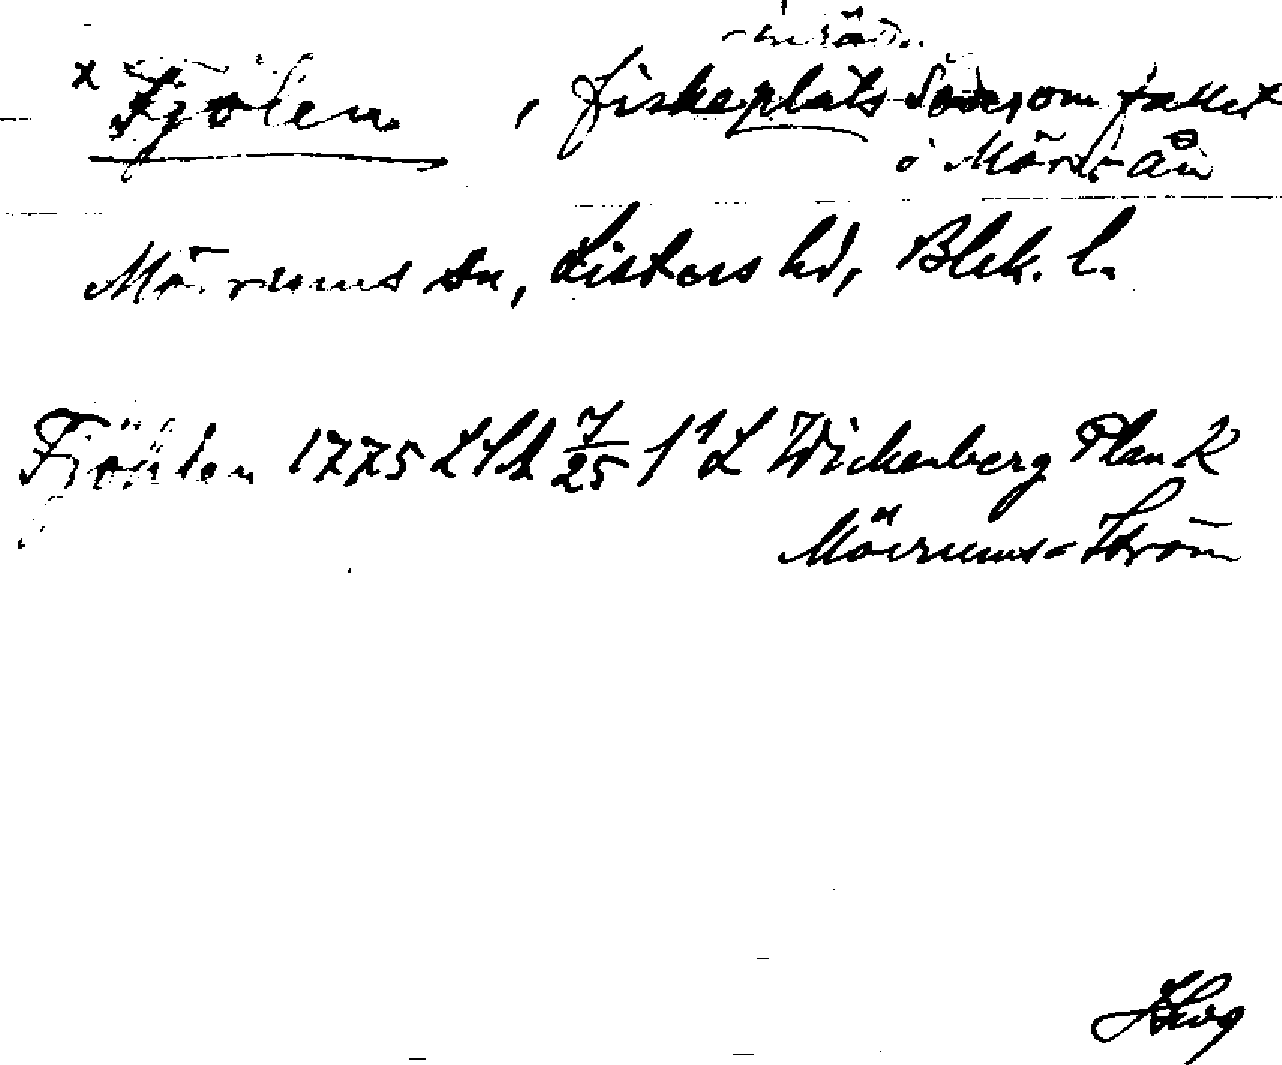 x Fjölen, fiskeplats Söder om fallet
i Mörr-ån
Mörrums sn, Listers hd, Blek. l.
Fjöhlen 1775 LSA 7/25 f¹ L Wickenberg Plan K
Mörrums-Ström